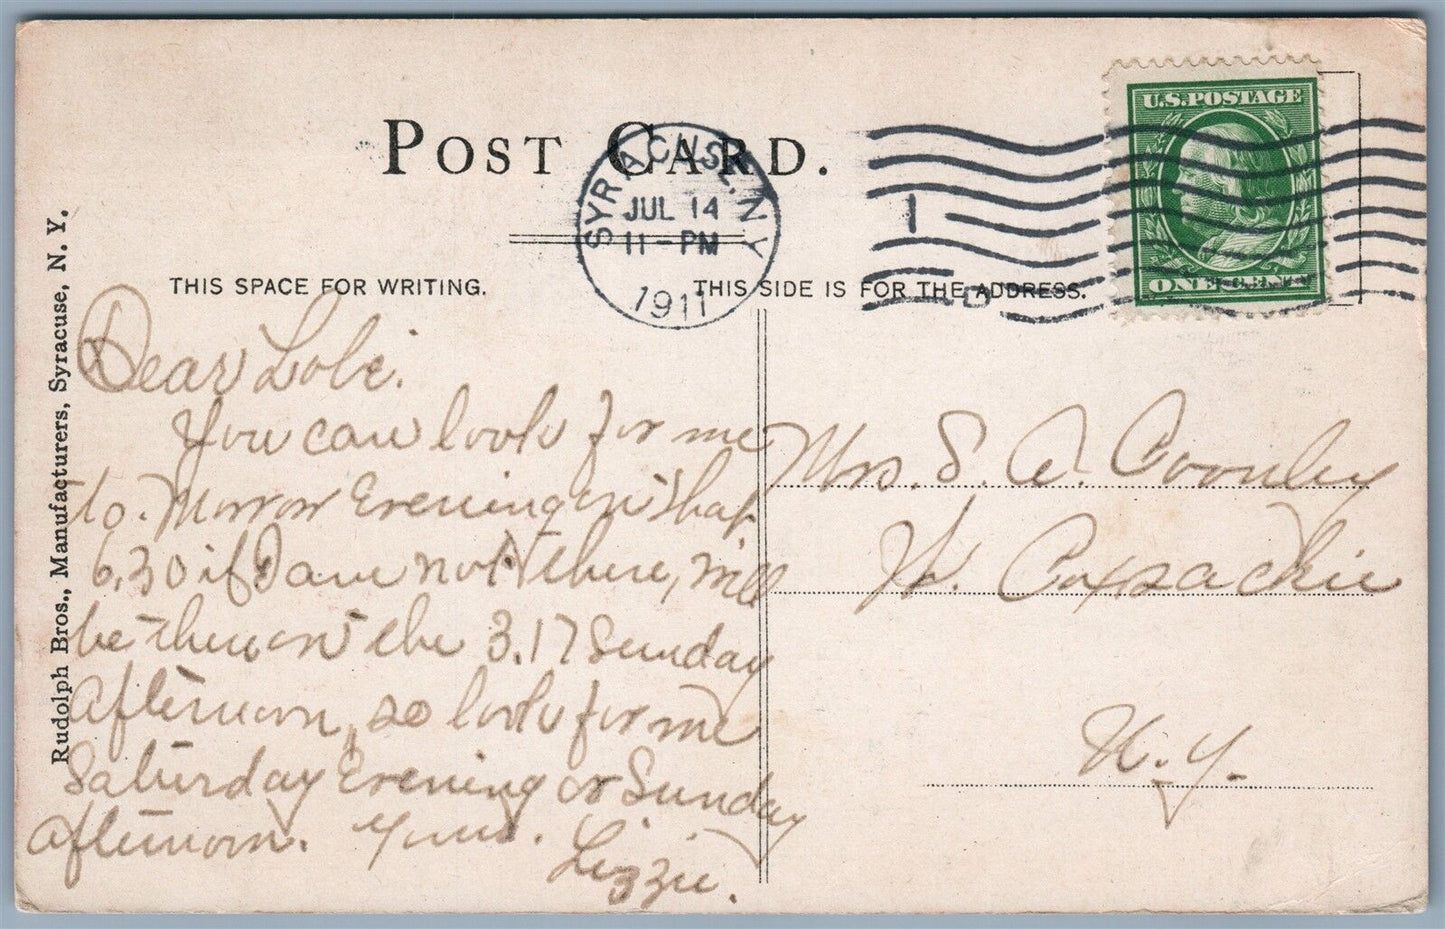 POST CARD.
SYRACUSE, N.Y.
JUL 14
11-PM
1911
1
D
U.S. POSTAGE
ONE CENT
THIS SPACE FOR WRITING.
THIS SIDE IS FOR THE ADDRESS.
Rudolph Bros., Manufacturers, Syracuse, N. Y.
Dear Lobi.
You can look for me
to. Morrow Evening on that
6.30 if I am not there, will
be there on the 3.17 Sunday
afternoon, so look for me
Saturday Evening or Sunday
afternoon. Yours.
Lizzie.
Mrs. S. A. Coonley
W. Coxsackie
N.Y.